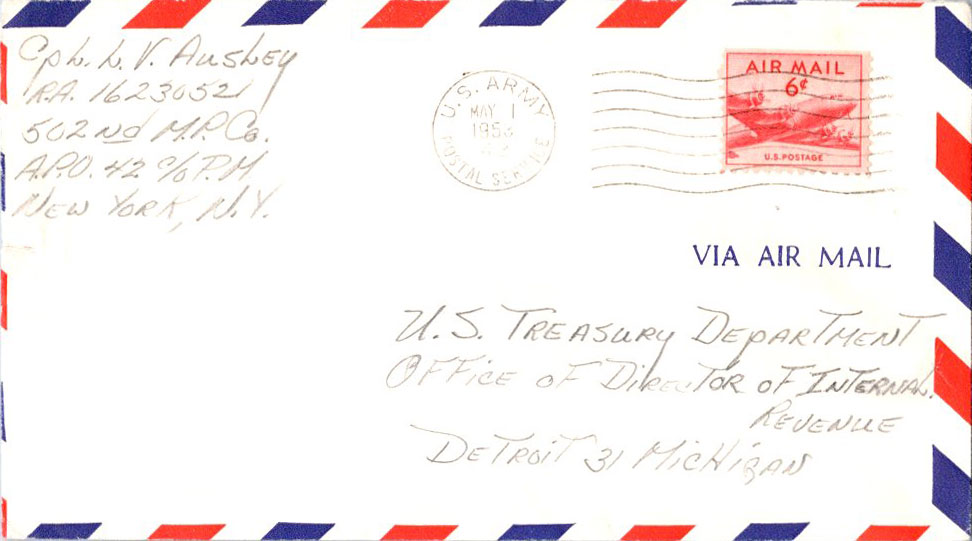 Cpl. L. V. Ausley
R.A. 16230521
502nd M.P. Co.
A.P.O. 42 c/o P.M
New York, N.Y.
U.S. ARMY
MAY 1
POSTAL SERVICE
AIR MAIL
6¢
U.S. POSTAGE
VIA AIR MAIL
U.S. Treasury Department
Office of Director of Internal
Revenue
Detroit 31 Michigan